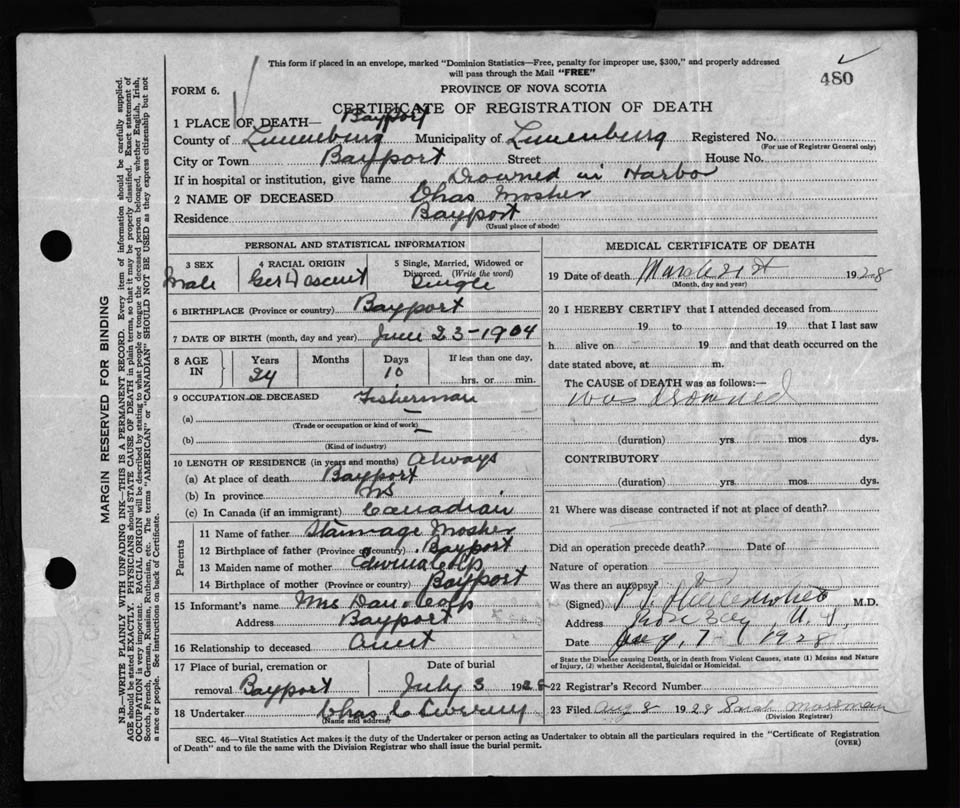 This form if placed in an envelope, marked "Dominion Statistics—Free, penalty for improper use, $300," and properly addressed
will pass through the Mail "FREE"
480
FORM 6.
PROVINCE OF NOVA SCOTIA
CERTIFICATE OF REGISTRATION OF DEATH
1 PLACE OF DEATH— Bayport
County of Lunenburg Municipality of Lunenburg Registered No.
(For use of Registrar General only)
City or Town Bayport Street House No.
If in hospital or institution, give name Drowned in Harbor
2 NAME OF DECEASED Chas Mosher
Residence Bayport
(Usual place of abode)
PERSONAL AND STATISTICAL INFORMATION
3 SEX Male
4 RACIAL ORIGIN Ger Descent
5 Single, Married, Widowed or Divorced. (Write the word) Single
6 BIRTHPLACE (Province or country) Bayport
7 DATE OF BIRTH (month, day and year) June 23-1904
8 AGE IN Years 24 Months Days 10 If less than one day, hrs. or min.
9 OCCUPATION OF DECEASED Fisherman
(a)
(Trade or occupation or kind of work)
(b)
(Kind of industry)
10 LENGTH OF RESIDENCE (in years and months) Always
(a) At place of death Bayport
(b) In province NS
(c) In Canada (if an immigrant) Canadian
Parents
11 Name of father Mosher
12 Birthplace of father (Province or country) Bayport
13 Maiden name of mother Edwina Corp
14 Birthplace of mother (Province or country) Bayport
15 Informant's name Mrs Dan Corp
Address Bayport
16 Relationship to deceased Aunt
17 Place of burial, cremation or removal Bayport
Date of burial July 3 1928
18 Undertaker Chas
(Name and address)
MEDICAL CERTIFICATE OF DEATH
19 Date of death March 21st 1928
(Month, day and year)
20 I HEREBY CERTIFY that I attended deceased from
19 to 19 that I last saw
h alive on 19 and that death occurred on the
date stated above, at m.
The CAUSE of DEATH was as follows:—
was drowned
(duration) yrs. mos. dys.
CONTRIBUTORY
(duration) yrs. mos. dys.
21 Where was disease contracted if not at place of death?
Did an operation precede death? Date of
Nature of operation
Was there an autopsy?
(Signed) M.D.
Address Rose Bay, N. S.
Date 7- 1928
State the Disease causing Death, or in death from Violent Causes, state (1) Means and Nature
of Injury, (2) whether Accidental, Suicidal or Homicidal.
22 Registrar's Record Number
23 Filed Aug 8 1928 Sarah Mossman
(Division Registrar)
SEC. 46—Vital Statistics Act makes it the duty of the Undertaker or person acting as Undertaker to obtain all the particulars required in the "Certificate of Registration
of Death" and to file the same with the Division Registrar who shall issue the burial permit.
(OVER)
MARGIN RESERVED FOR BINDING
N.B.—WRITE PLAINLY WITH UNFADING INK—THIS IS A PERMANENT RECORD. Every item of information should be carefully supplied.
AGE should be stated EXACTLY. PHYSICIANS should STATE CAUSE OF DEATH in plain terms, so that it may be properly classified. Exact statement of
OCCUPATION is very important. RACIAL ORIGIN will be described by stating to what people or tongue the deceased person belonged, whether English, Irish,
Scotch, French, German, Russian, Ruthenian, etc. The terms "AMERICAN" or "CANADIAN" SHOULD NOT BE USED as they express citizenship but not
a race or people. See instructions on back of Certificate.